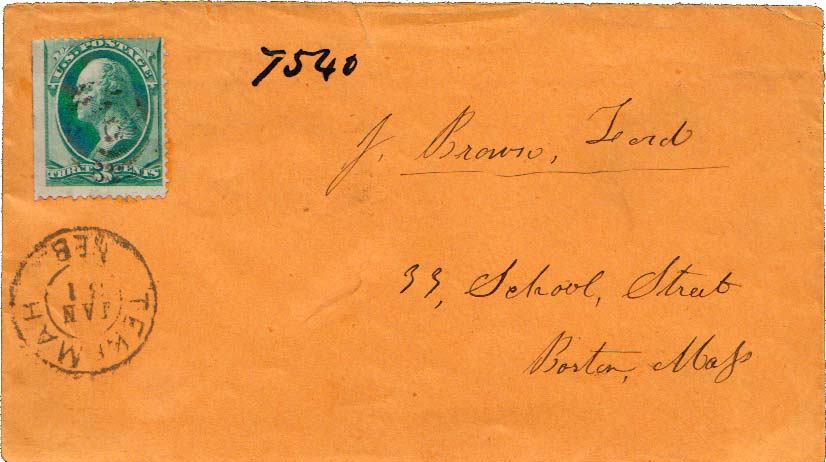 U.S. POSTAGE
THREE 3 CENTS
7540
J. Brown, Lord
33, School, Street
Boston, Mass
TEKAMAH
JAN
NEB